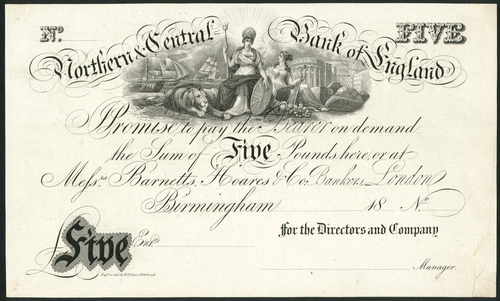 No. FIVE
Northern & Central Bank of England
I Promise to pay the Bearer on demand
the Sum of Five Pounds here, or at
Messrs. Barnetts, Hoares & Co. Bankers, London
Birmingham 18 No.
For the Directors and Company
Five Entd.
Manager.